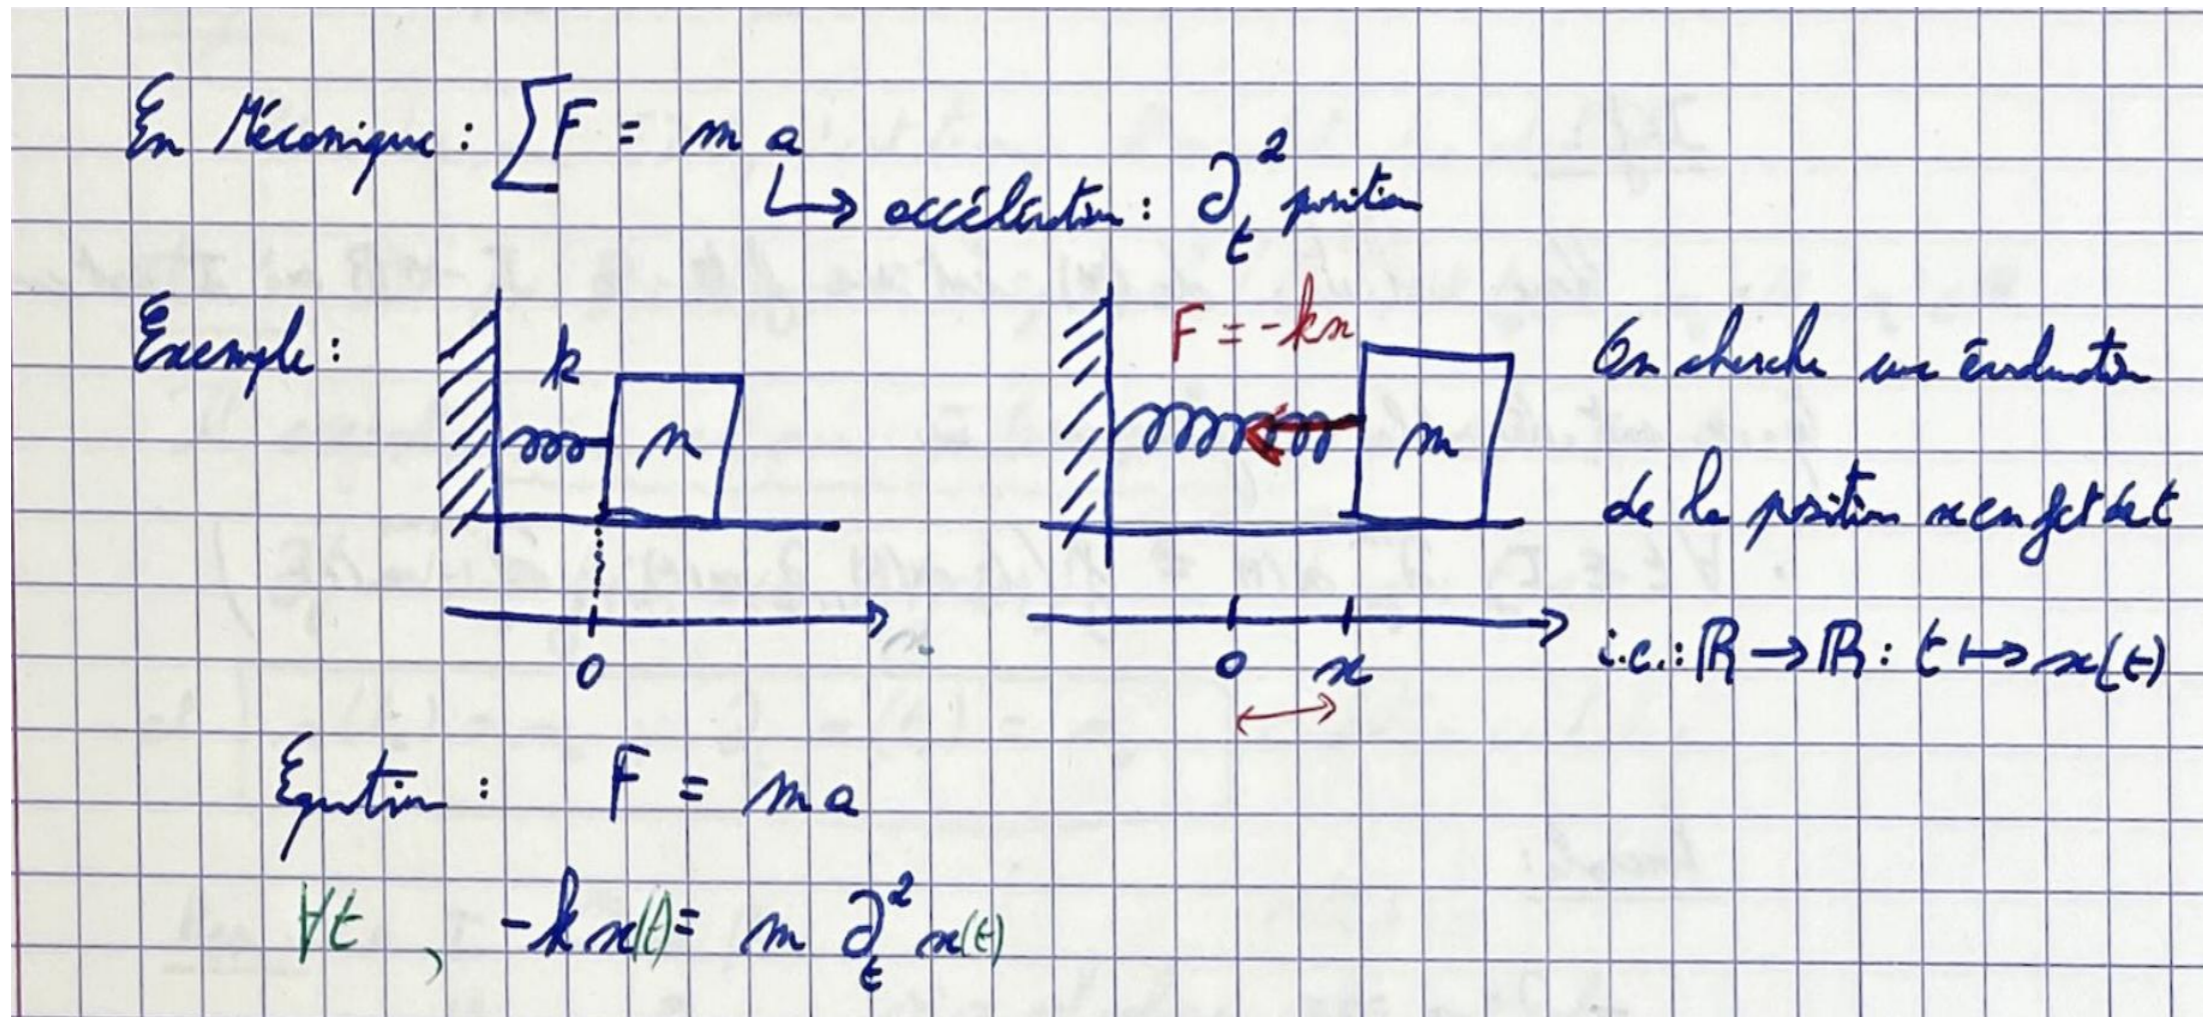 En Mécanique : ∑F = m a
↳ accélération : ∂_t^2 position
Exemple :
k
m
0
F = -kx
m
0 x
On cherche une évolution
de la position x en fct de t
i.e. : ℝ → ℝ : t ↦ x(t)
Equation : F = m a
∀t , -k x(t) = m ∂_t^2 x(t)